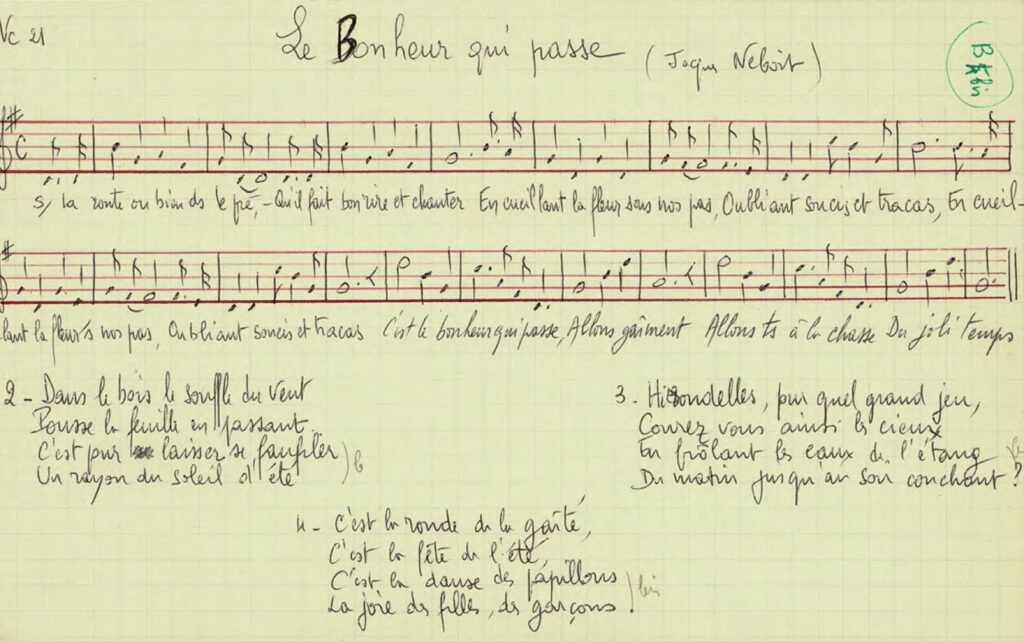 Vc 21
Le Bonheur qui passe (Jaques Neboit)
S/ la route ou bien ds le pré, - Qu'il fait bon rire et chanter En cueillant la fleur sous nos pas, Oubliant soucis et tracas, En cueil-
lant la fleur s/ nos pas, Oubliant soucis et tracas C'est le bonheur qui passe, Allons gaîment Allons ts à la chasse Du joli temps
2 - Dans le bois le souffle du vent
Pousse la feuille en passant
C'est pur laisser se faufiler
Un rayon du soleil d'été
3. Hirondelles, pur quel grand jeu,
Courez vous ainsi les cieux
En frôlant les eaux de l'étang
Du matin jusqu'au soir couchant ?
4 - C'est la ronde de la gaîté,
C'est la fête de l'été,
C'est la danse des papillons
La joie des filles, des garçons ! bis